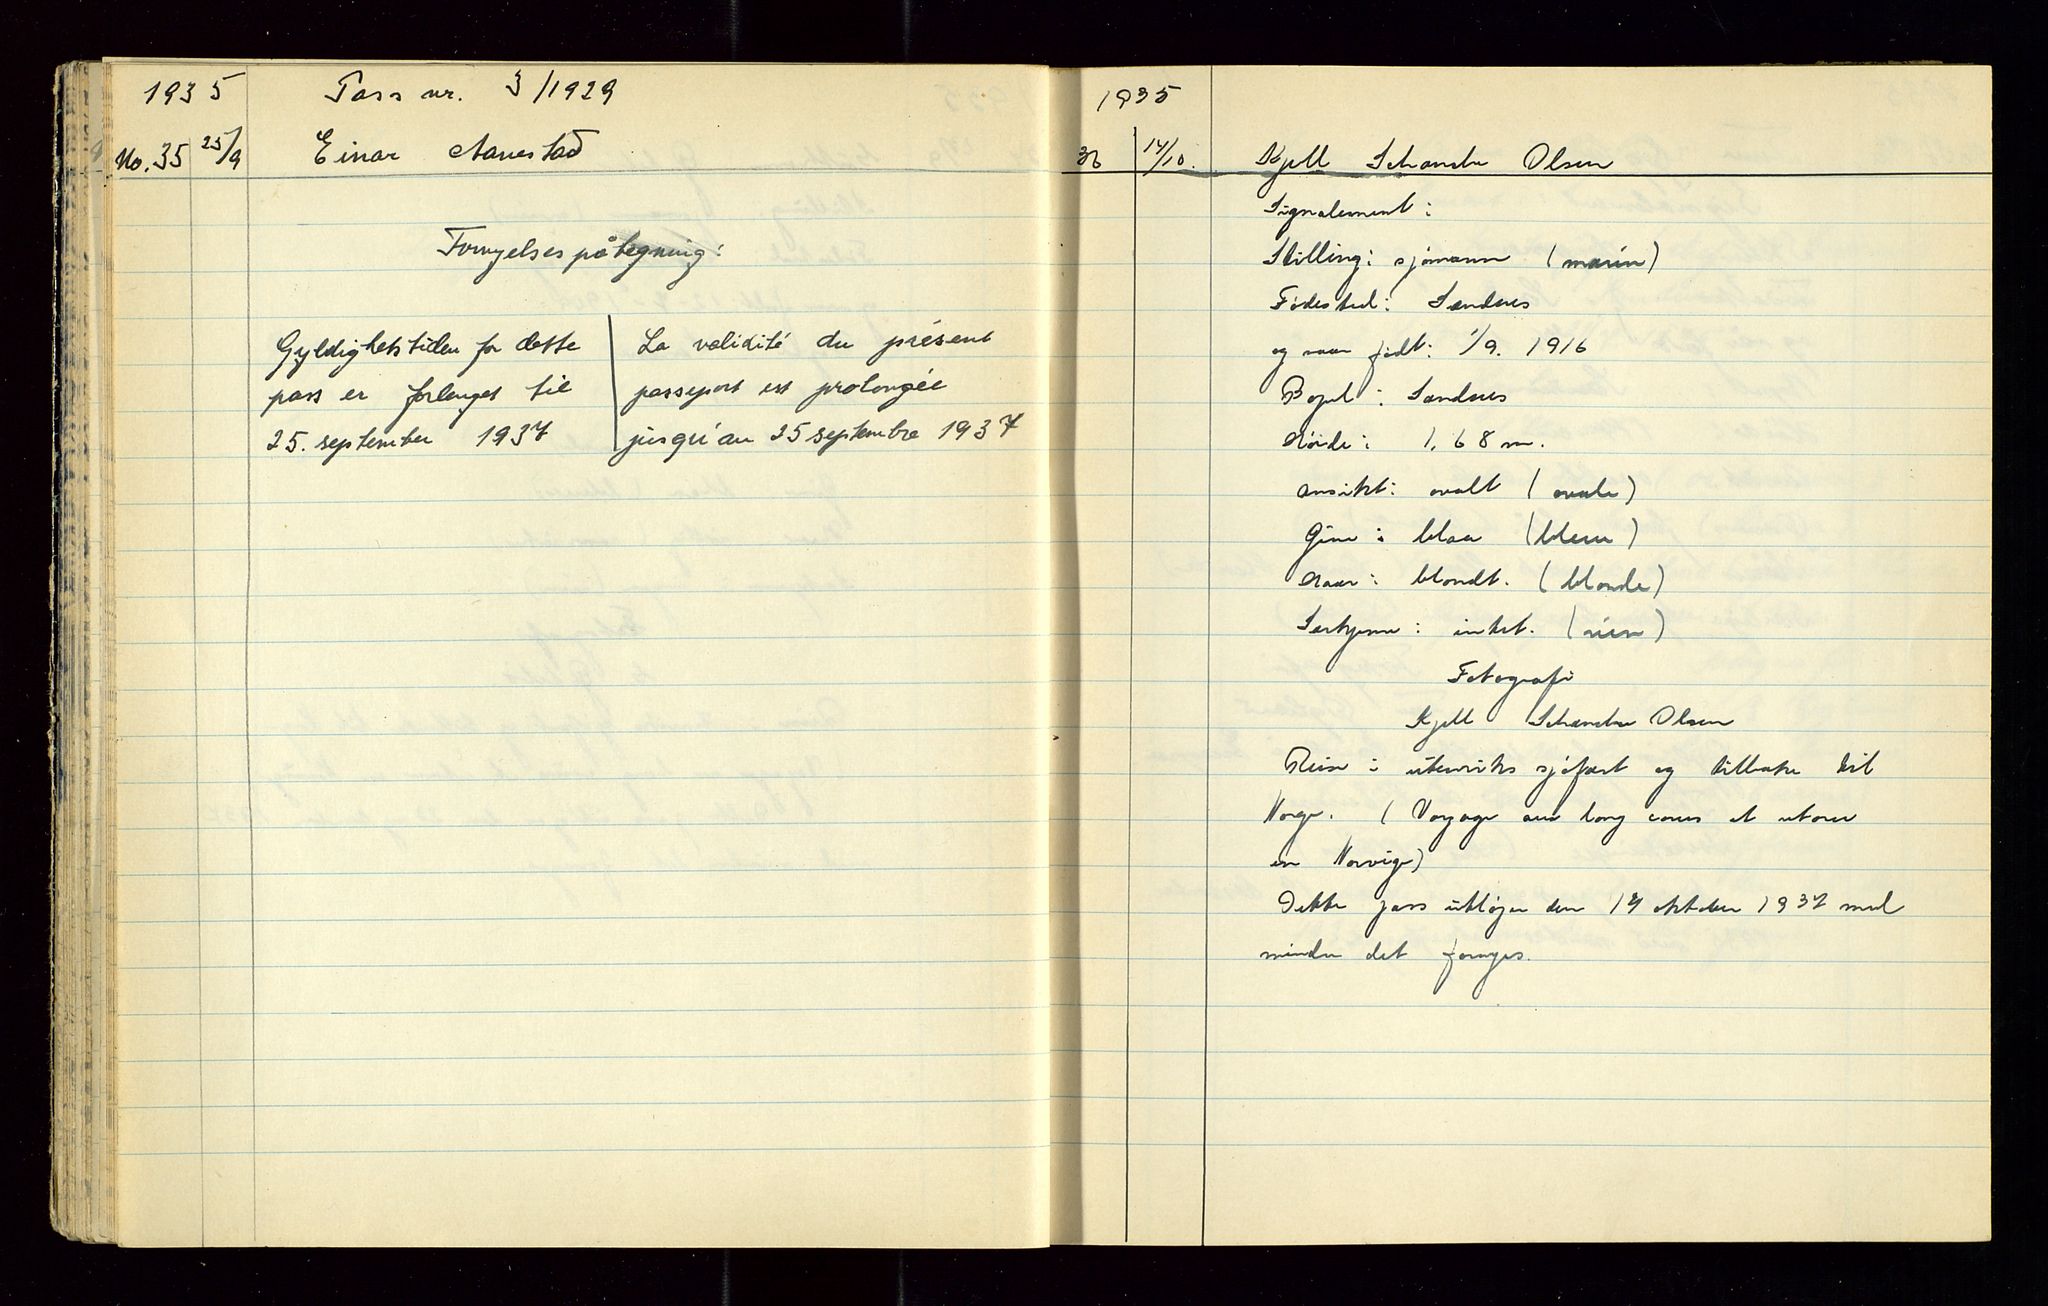 1935 Pass nr. 3/1929
No. 35 25/9 Einar Aanestad
Fornyelsespåtegning:
Gyldighetstiden for dette
pass er forlenget til
25. september 1937
La validité du présent
passeport est prolongée
jusqu'au 25 septembre 1937
1935
36 14/10. Kjell Schanche Olsen
Signalement:
Stilling: sjømann (marin)
Fødested: Sandnes
og naar født: 1/9. 1916
Bopel: Sandnes
Høide: 1,68 m.
Ansikt: ovalt (ovale)
Øine: blaa (bleue)
Haar: blondt. (blonde)
Særkjenne: intet. (rien)
Fotografi
Kjell Schanche Olsen
Reise i utenriks sjøfart og tilbake til
Norge. (Voyage au long cours et retour
en Norvège)
Dette pass utløper den 14 oktober 1937 med
mindre det fornyes.